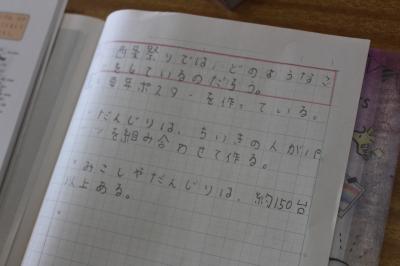 西条祭りでは、どのようなこ
をしているのだろう。
・毎年ポスターを作っている。
・だんじりは、ちいきの人がパ
ツを組み合わせて作る。
・みこしやだんじりは、約150台
以上ある。